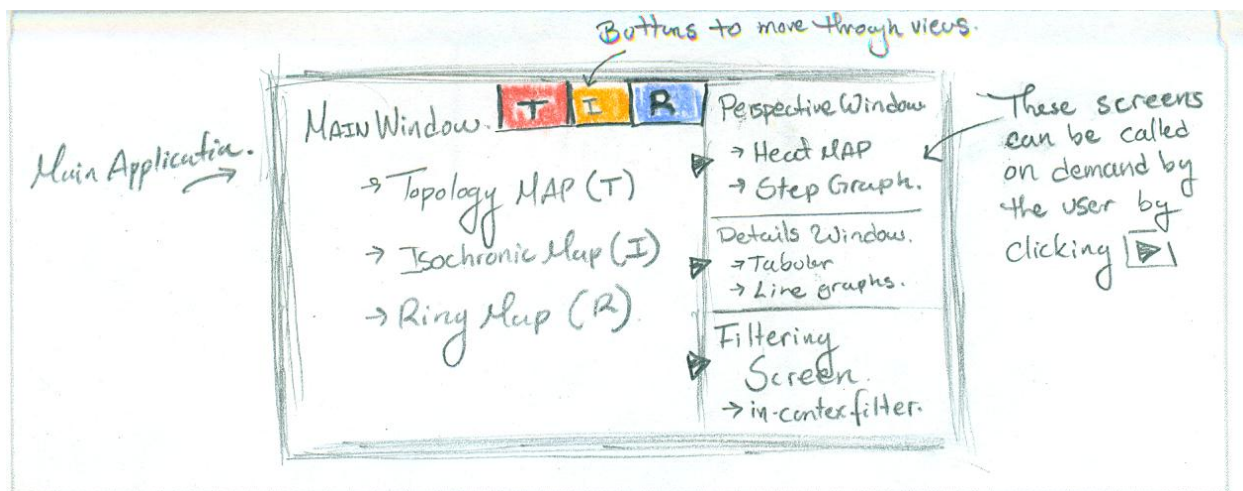 Buttons to move through views.
Main Application.
MAIN Window.
T I R
→ Topology MAP (T)
→ Isochronic Map (I)
→ Ring Map (R).
Perspective Window
→ Heat MAP
→ Step Graph.
Details Window.
→ Tabular
→ Line graphs.
Filtering
Screen.
→ in-contex filter.
These screens
can be called
on demand by
the user by
clicking